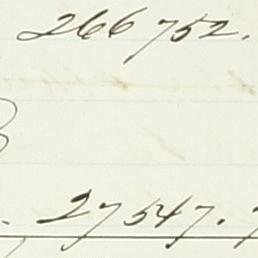 266 752.
27547.